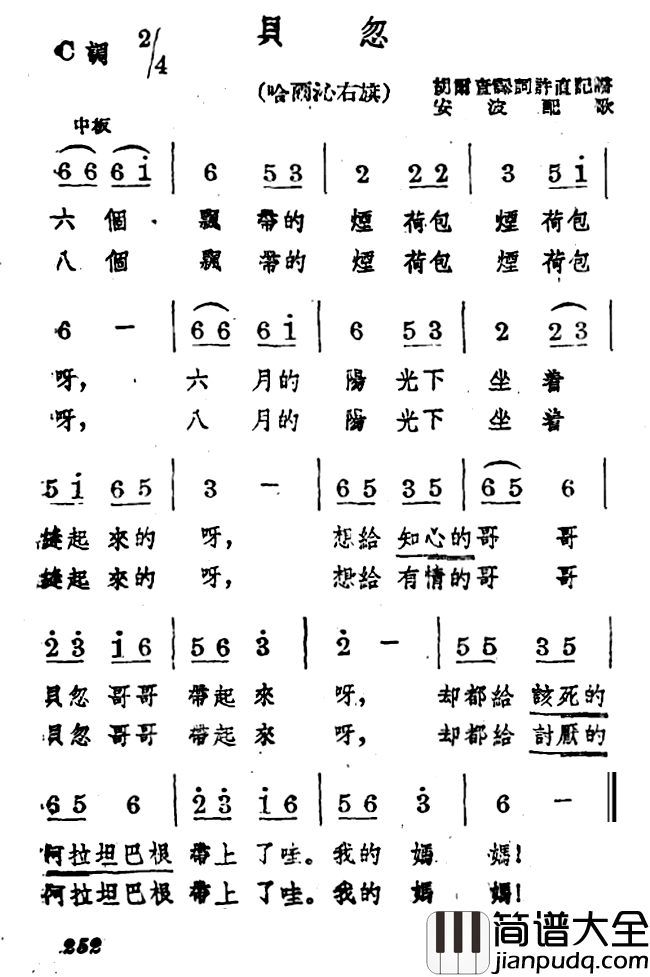 貝忽
C調 2/4
(哈爾沁右旗)
胡爾查譯詞許直記譜
安波配歌
中板
6 6 6 i | 6 5 3 | 2 2 2 | 3 5 i |
六個飄帶的煙荷包煙荷包
八個飄帶的煙荷包煙荷包
6 – | 6 6 6 i | 6 5 3 | 2 2 3 |
呀，六月的陽光下坐着
呀，八月的陽光下坐着
5 i 6 5 | 3 – | 6 5 3 5 | 6 5 6 |
縫起來的呀，想給知心的哥哥
縫起來的呀，想給有情的哥哥
2 3 i 6 | 5 6 3 | 2 – | 5 5 3 5 |
貝忽哥哥帶起來呀，却都給該死的
貝忽哥哥帶起來呀，却都給討厭的
6 5 6 | 2 3 i 6 | 5 6 3 | 6 – ‖
阿拉坦巴根帶上了哇。我的媽媽！
阿拉坦巴根帶上了哇。我的媽媽！
252
简谱大全
jianpudq.com